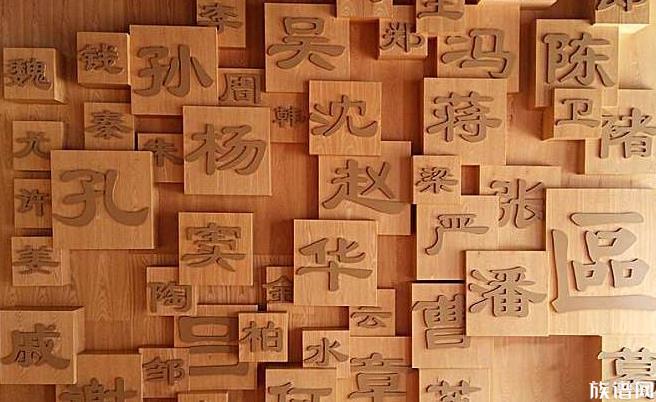 李
吴
郑
冯
陈
魏
钱
孙
周
韩
沈
蒋
卫
褚
尤
秦
朱
杨
许
孔
赵
梁
严
张
區
姜
窦
华
陶
金
曹
潘
戚
吕
柏
云
邹
水
谢
何
章